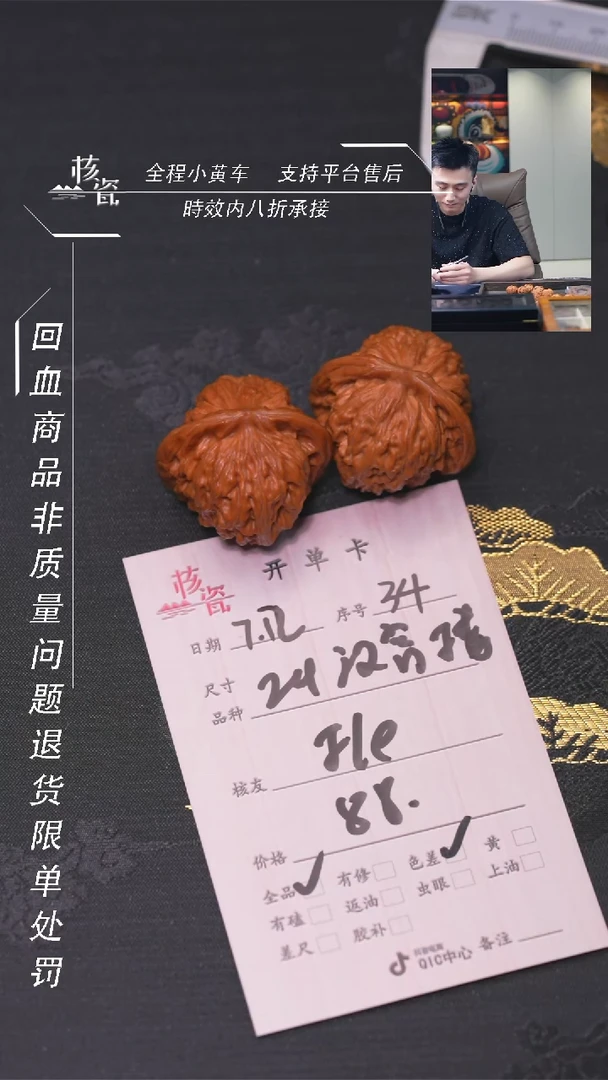 核瓷
全程小黄车 支持平台售后
時效内八折承接
回血商品非质量问题退货限单处罚
核瓷
开单卡
日期 7.12 序号 34
尺寸
品种 24
核友 Fle
价格 88.
全品 有修 色差 黄
有磕 返油 虫眼 上油
差尺 胶补
抖音电商 QIC中心 备注